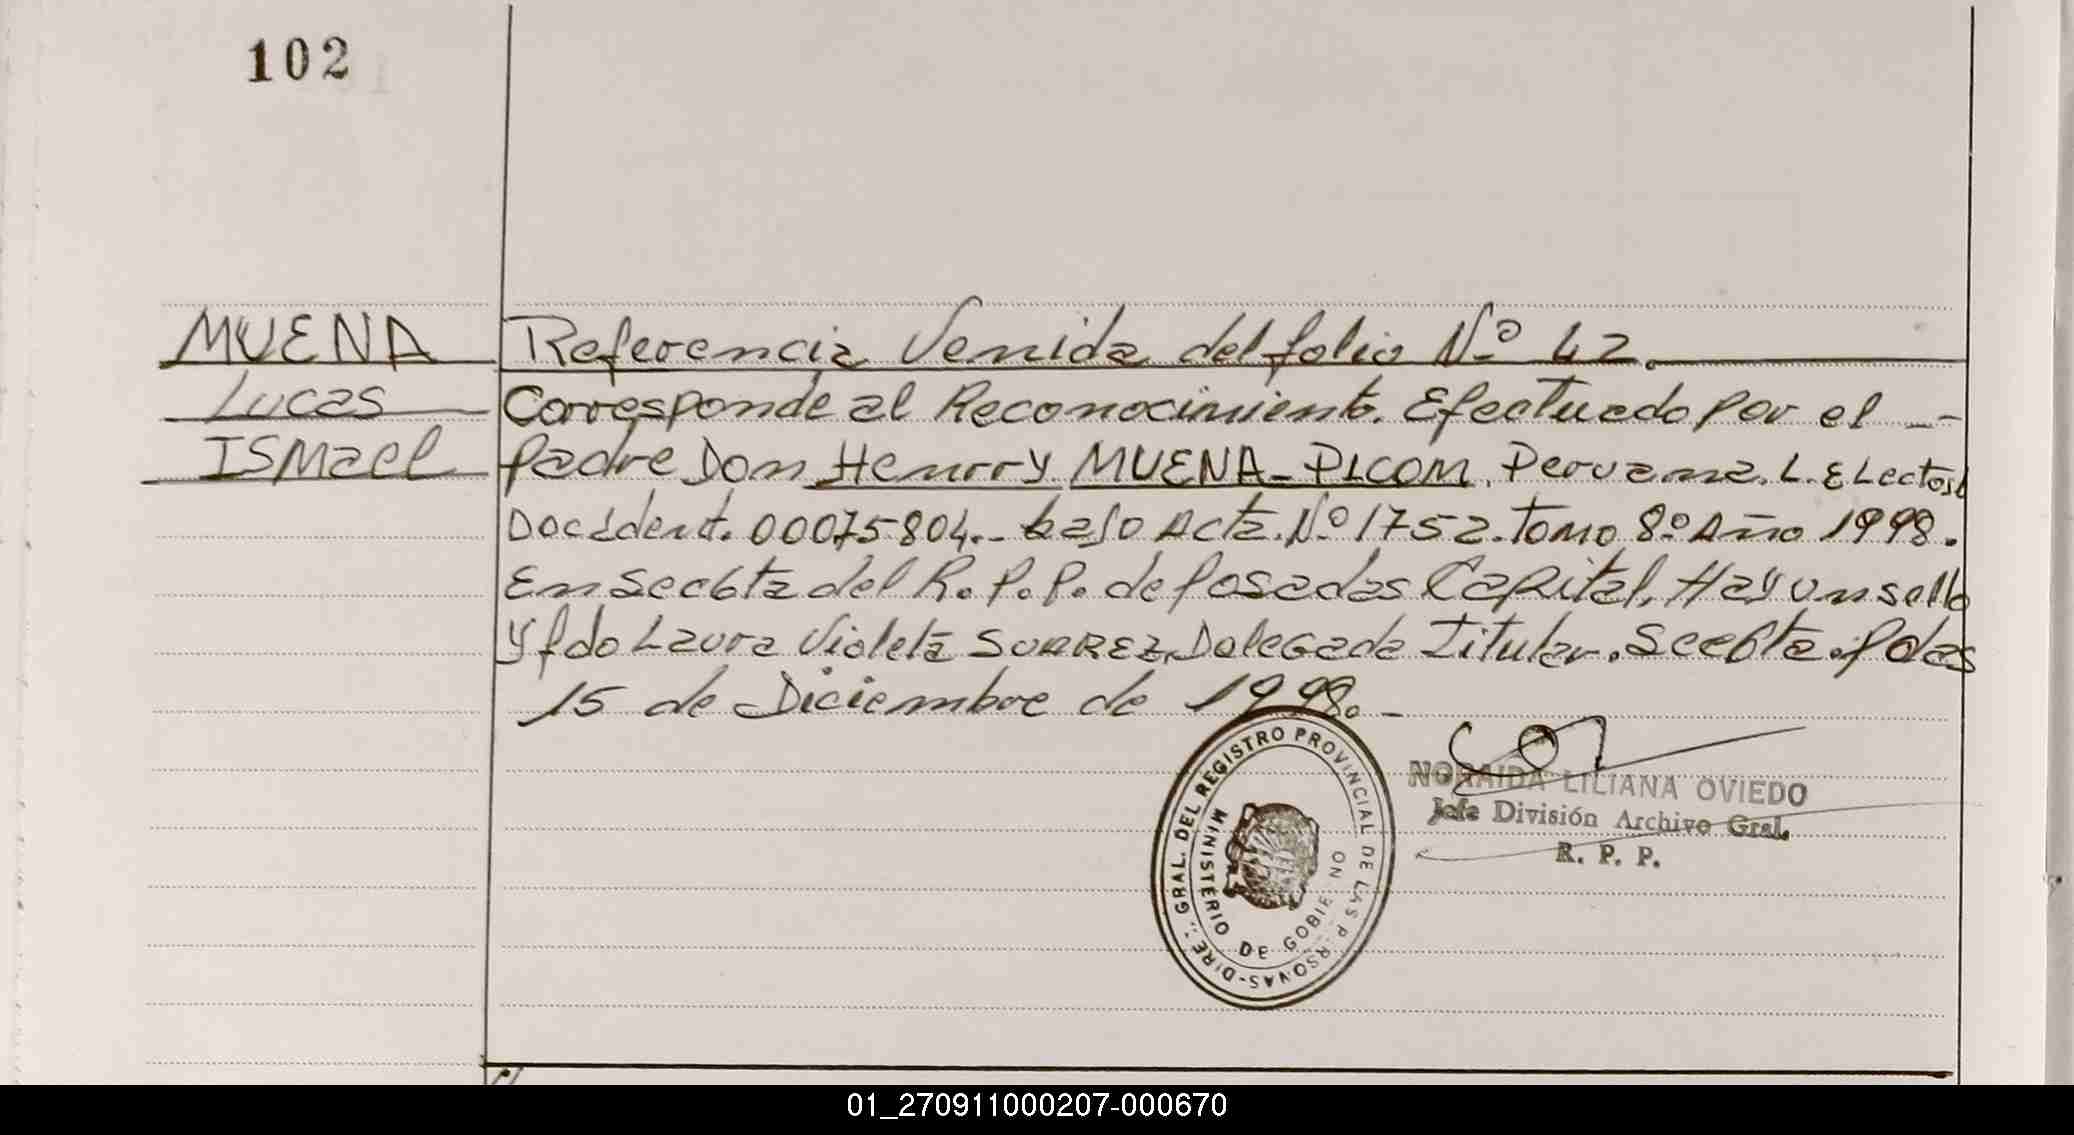 102
MUENA
Lucas
ISMael
Referencia Venida del folio Nº 42.
Corresponde al Reconocimiento. Efectuado por el -
padre Don Henrry MUENA-PICOM. Peruana. L. Electoral
Doc Ident. 00075804.- bajo Acta. Nº 1752. Tomo 8º Año 1998.
En Seccta del R. P. P. de Posadas Capital. Hay un sello
Y fdo Laura Violeta SUAREZ, Delegada Titular. Seccta. Pdas
15 de Diciembre de 1998. -
NORAIDA LILIANA OVIEDO
Jefe División Archivo Gral.
R. P. P.
DIRE. GRAL. DEL REGISTRO PROVINCIAL DE LAS PERSONAS-
MINISTERIO DE GOBIERNO
01_270911000207-000670